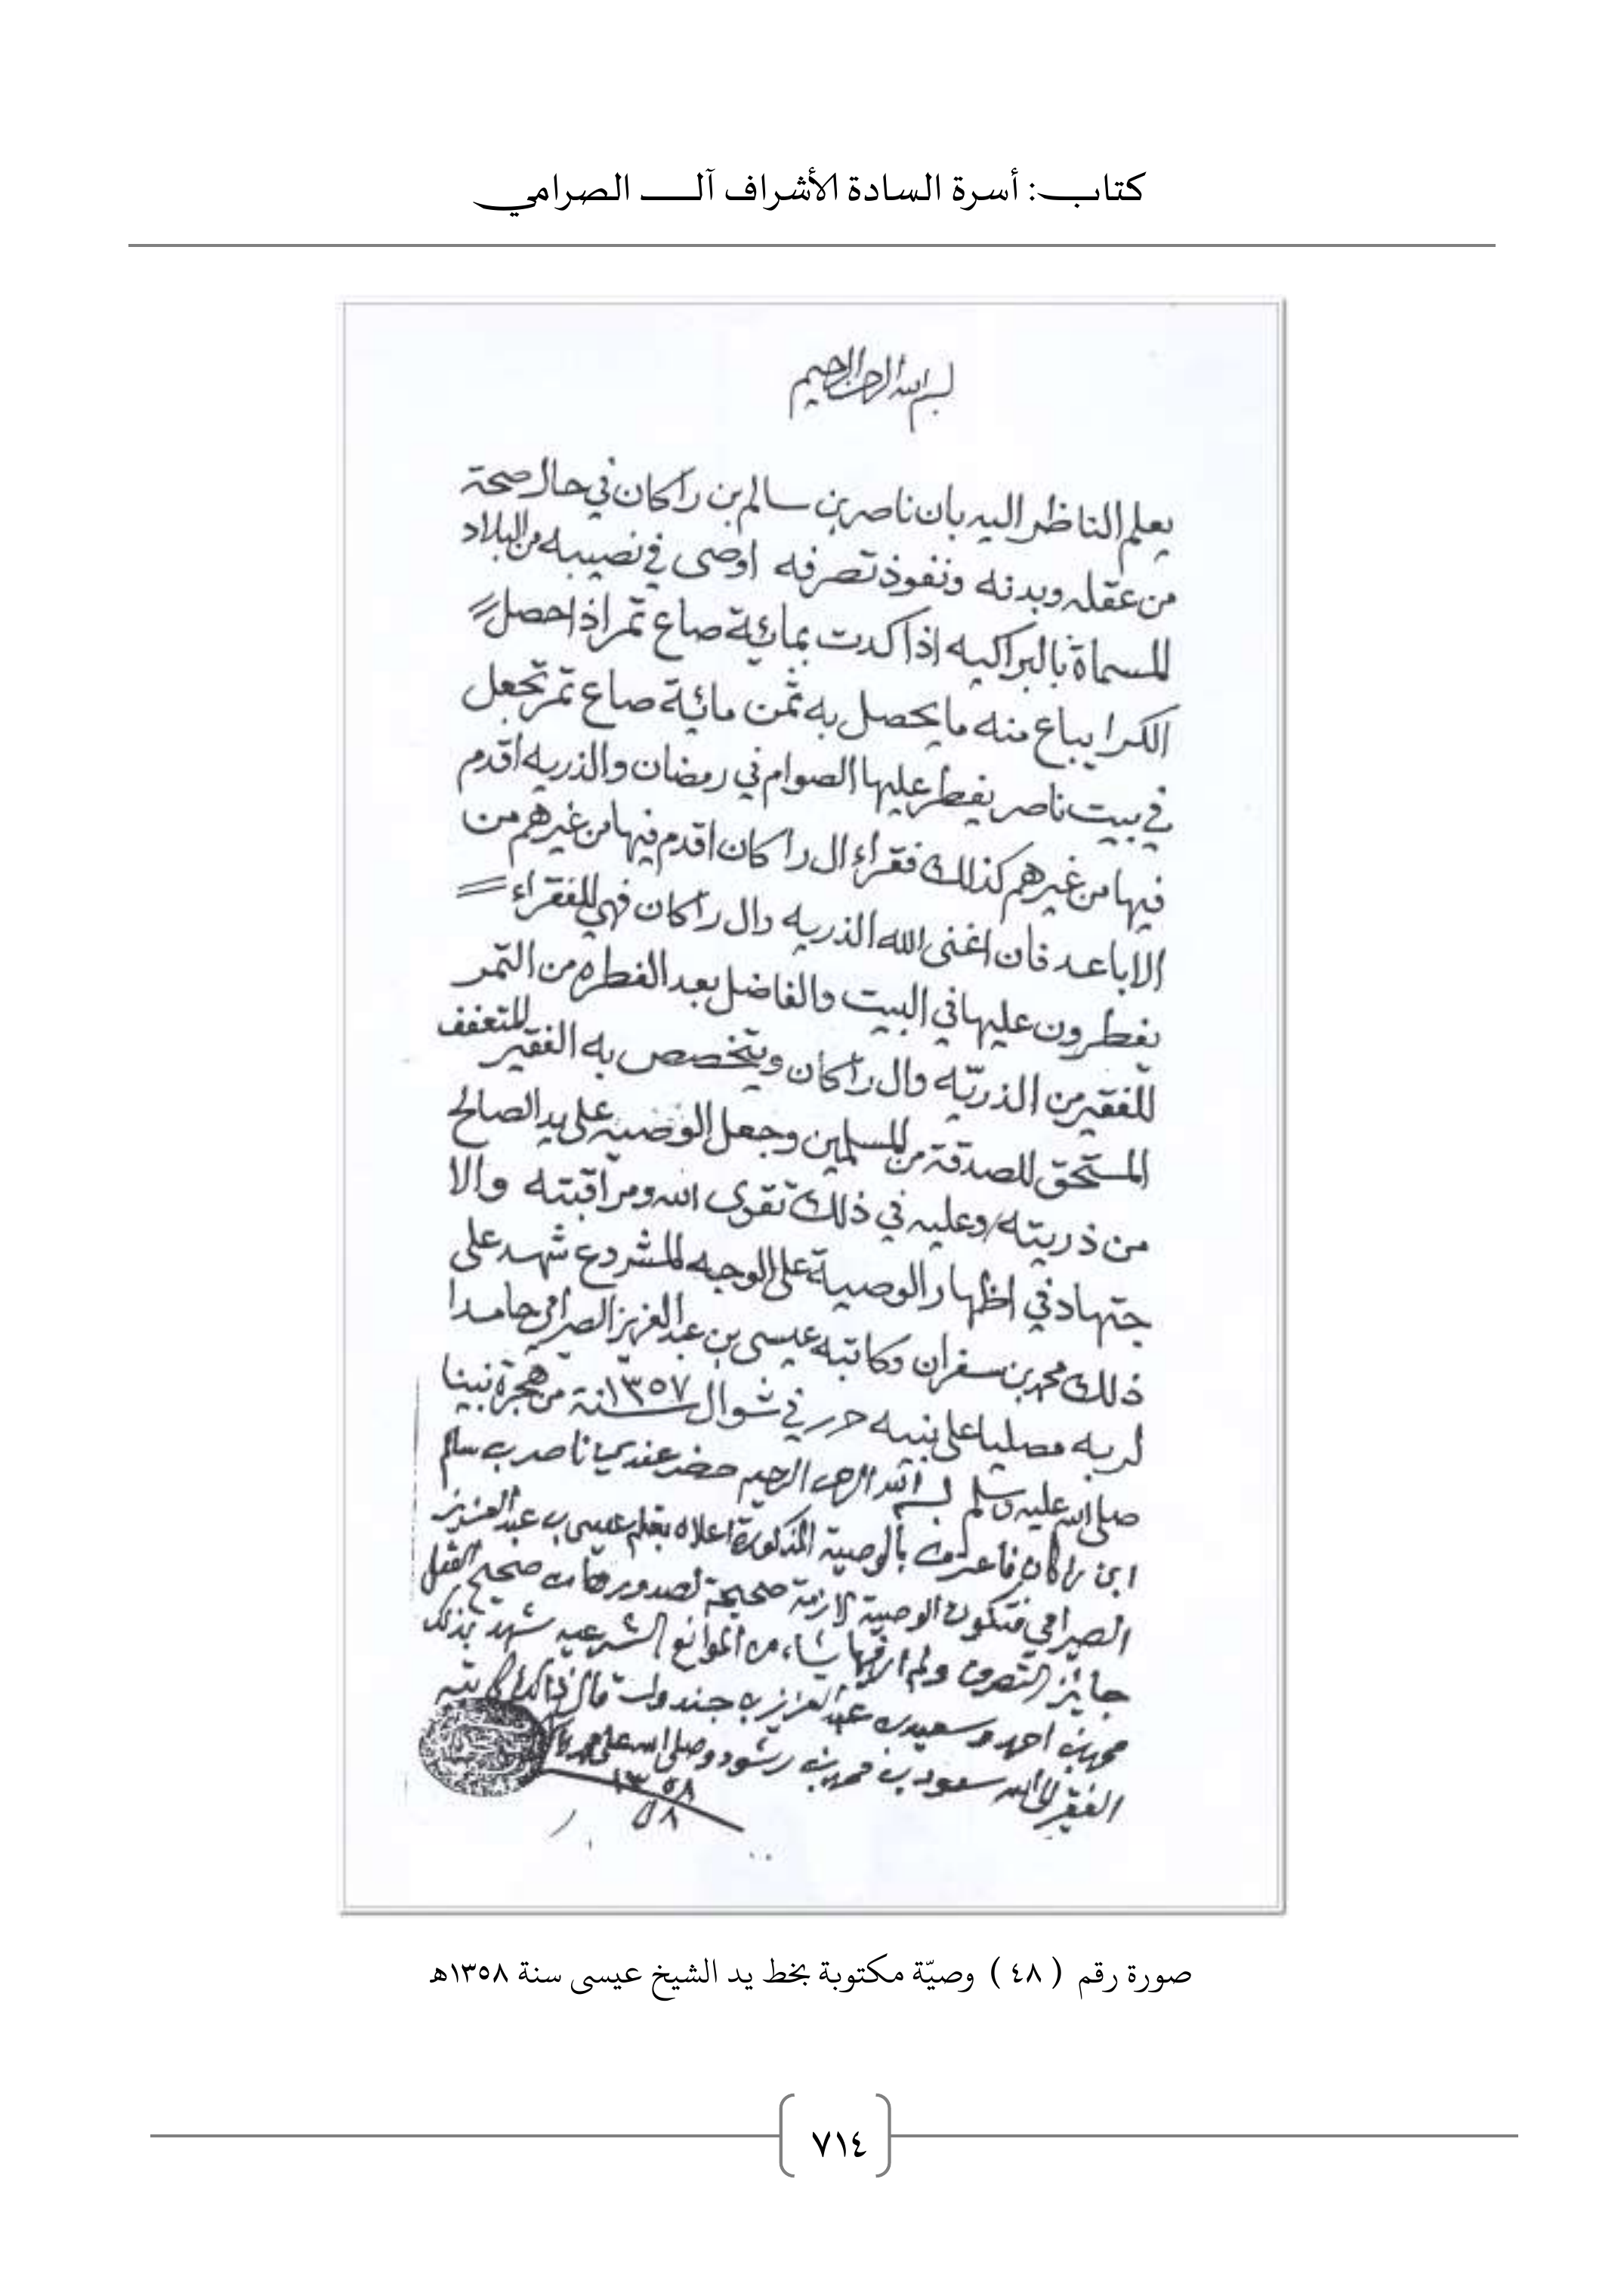 كتاب: أسرة السادة الأشراف آل الصرامي
بسم الله الرحمن الرحيم
يعلم الناظر اليه بان ناصر بن سالم بن راكان في حال صحة
من عقله وبدنه ونفوذ تصرفه اوصى في نصيبه من البلاد
المسماة بالبراكيه اذا كدت بمائية صاع تمر اذا حصل
الكرا يباع منه ما يحصل به ثمن مائية صاع تمر تجعل
في بيت ناصر يفطر عليها الصوام في رمضان والذريه اقدم
فيها من غيرهم كذلك فقراء ال راكان اقدم فيها من غيرهم من
الاباعد فان اغنى الله الذريه وال راكان فهي للفقراء
يفطرون عليها في البيت والفاضل بعد الفطره من التمر
للفقير من الذريّه وال راكان ويتخصص به الفقير المتعفف
المستحق للصدقة من المسلمين وجعل الوصية على يد الصالح
من ذريته وعليه في ذلك تقوى الله ومراقبته والا
جتهاد في اظهار الوصية على الوجه المشروع شهد على
ذلك محمد بن سفران وكاتبه عيسى بن عبد العزيز الصرامي حامدا
لربه مصليا على نبيه حرر في شوال سنة ١٣٥٧ من هجرة نبينا
صلى الله عليه وسلم بسم الله الرحمن الرحيم حضر عندي ناصر بن سالم
ابن راكان فاعترف بالوصية المذكورة اعلاه بقلم عيسى بن عبد العزيز
الصرامي فتكون الوصية لازمة صحيحة لصدورها من صحيح العقل
جايز التصرف ولم ار فيها شياء من الموانع الشرعيه شهد بذلك
محمد بن احمد وسعيد بن عبد العزيز بن جندو كاتبه
الفقير الى الله سعود بن محمد بن رشود وصلى الله على محمد
١٣٥٨
صورة رقم ( ٤٨ ) وصيّة مكتوبة بخط يد الشيخ عيسى سنة ١٣٥٨هـ
٧١٤